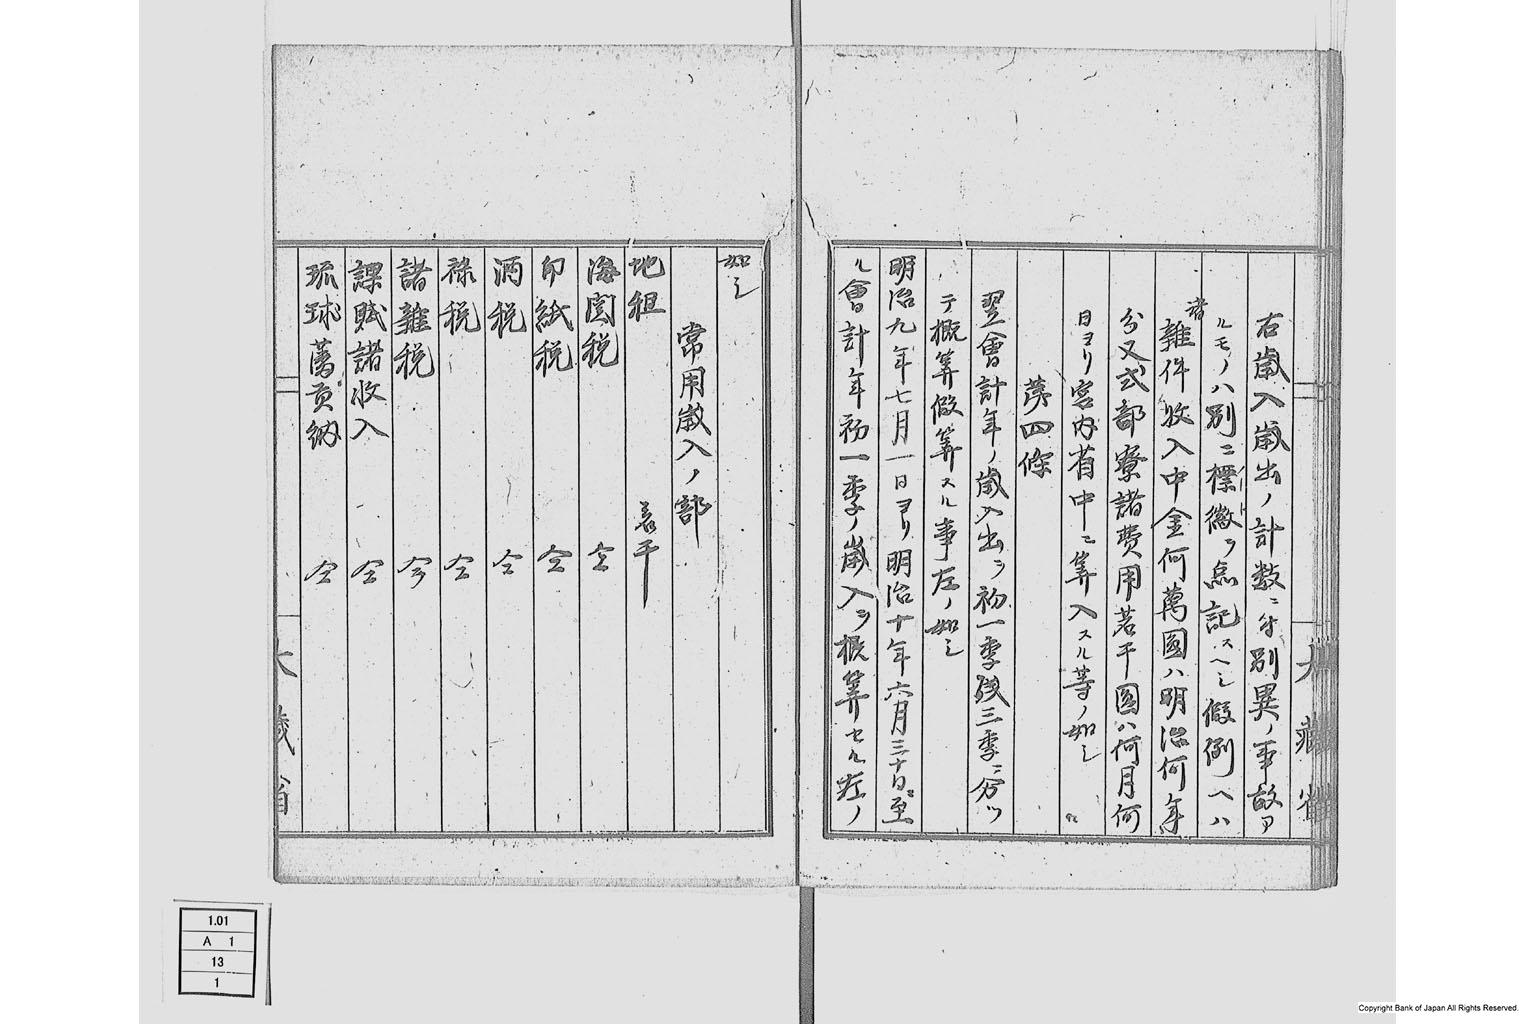 右歲入歲出ノ計数ニ付別異ノ事故ア
ルモノハ別ニ標徽ヲ烝記スヘシ假例ヘハ
諸雜件收入中金何萬國ハ明治何年
分又式部寮諸費用若干圓ハ何月何
日ヨリ宮内省中ニ算入スル等ノ如シ
苐四條
翌會計年ノ歲入出ヲ初一季後三季ニ分ツ
テ概算假算スル事左ノ如シ
明治九年七月一日ヨリ明治十年六月三十日ニ至
ル會計年初一季ノ歲入ヲ概算セル左ノ
大藏省
如シ
常用歲入ノ部
地租 若干
海関税 仝
印紙税 仝
酒税 仝
祿税 仝
諸雜税 仝
課賦諸收入 仝
琉球藩貢納 仝
大藏省
1.01
A 1
13
1
Copyright Bank of Japan All Rights Reserved.